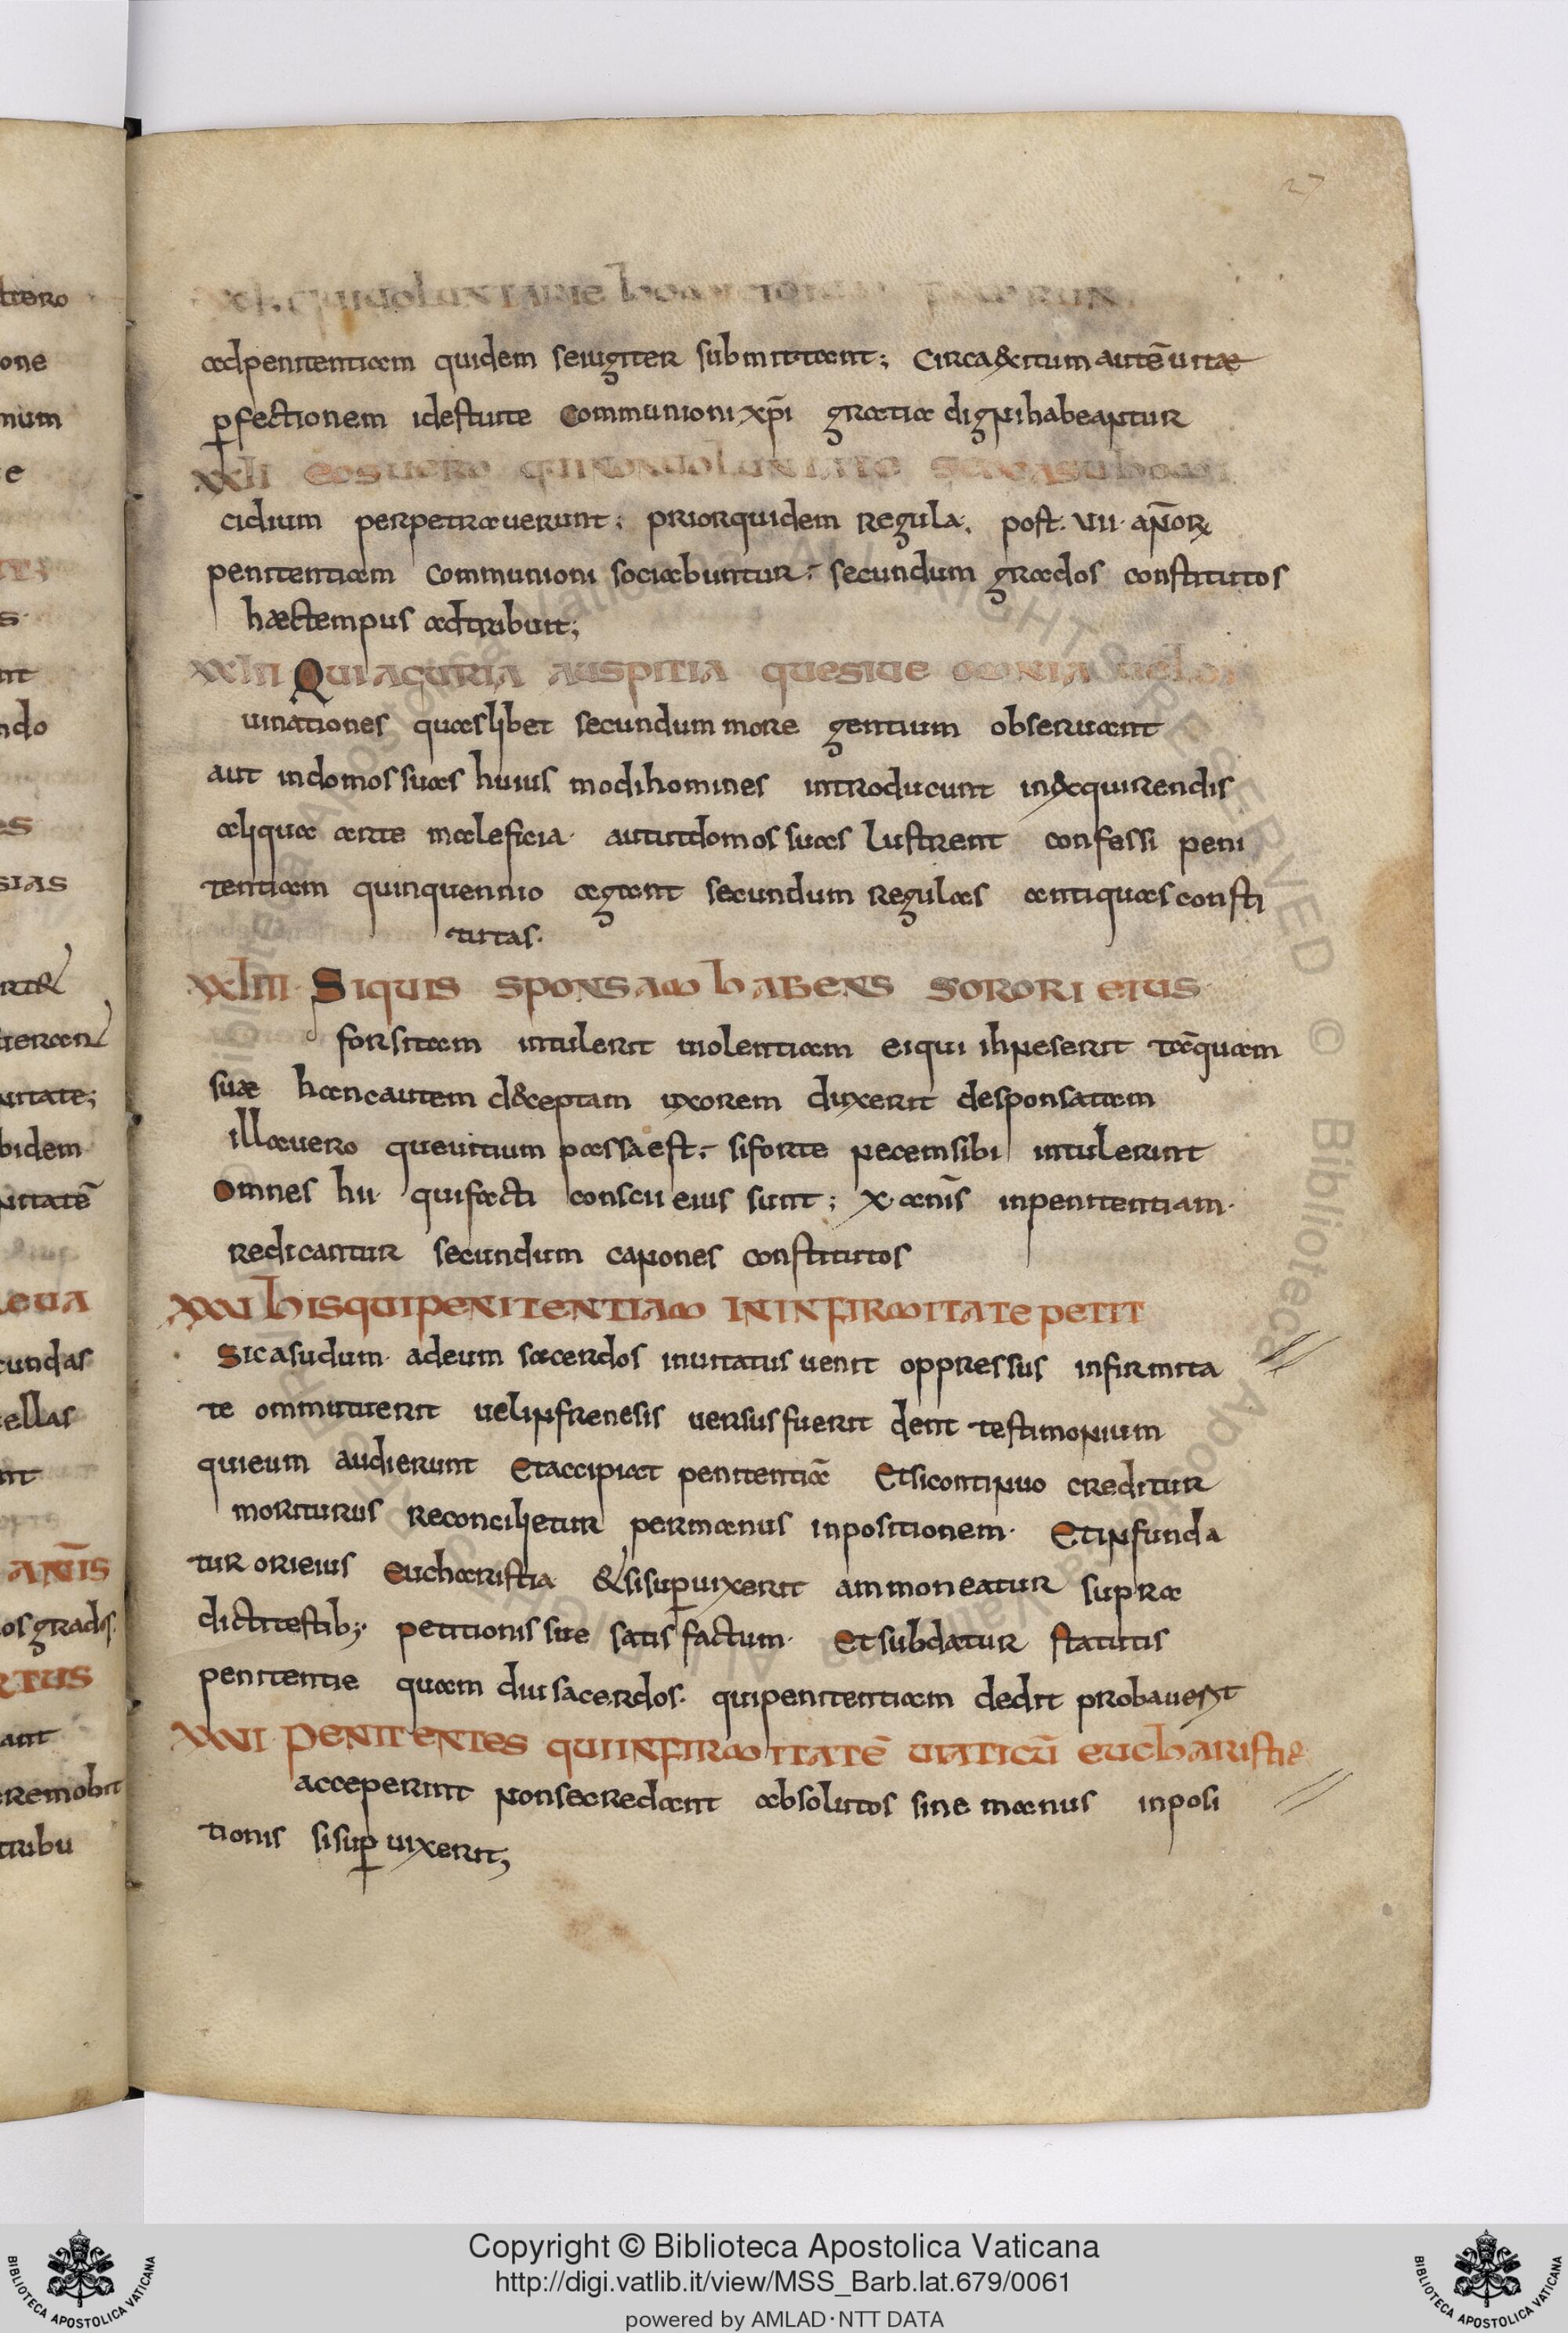 27
xxi. qui uoluntarie homicidium fecerunt
adpenitentiam quidem seiugiter submittant; Circa&itum autē uitae
ꝑfectionem idestuite Communioni xp̄i gratia dignihabeantur
xxii eosuero quinonuoluntate sedcasuhomi
cidium perpetrauerunt; priorquidem regula. post. vii. an̄orꝝ
penitentiam Communioni sociabuntur; secundum grados constitutos
haectempus adtribuit;
xxiii Quiaguria auspitia quesiue omnia uel di
uinationes quaslibet secundum more gentium obseruant
aut indomossuas huius modihomines introducunt in&quirendis
aliqua arte maleficia. aututdomossuas lustrent confessi peni
tentiam quinquennio agant secundum regulas antiquasconsti
tutas.
xxiiii. Siquis sponsam habens sorori eius
forsitam intulerit uiolentiam eiqui ihneserit tāquam
suae hancautem d&ceptam uxorem duxerit desponsatam
illauero queuitium passaest; siforte necemsibi intulerint
Omnes hii quifacti conscii eius sunt; x. annīs inpenitentiam.
redicantur secundum canones constitutos
xxv hisquipenitentiam in infirmitate petit
Sicasudum. adeum sacerdos inuitatus uenit oppressus infirmita
te ommutuerit uelinfrenesis uersusfuerit dent testimonium
quieum audierunt Etaccipiat penitentiā Etsicontinuo creditur
moriturus reconcilietur permanus inpositionem. Etinfunda
tur orieius Eucharistia &sisuꝑuixerit ammoneatur supra
dictitestib; petitionissue satis factum. Etsubdatur statutis
penitentie quam diusacerdos. quipenitentiam dedit probauerit
xxvi Penitentes quiinfirmitatē uiaticū eucharistie
acceperint nonsecredant absolutos sine manus inposi
tionis sisuꝑ uixerit;
Copyright © Biblioteca Apostolica Vaticana
http://digi.vatlib.it/view/MSS_Barb.lat.679/0061
powered by AMLAD·NTT DATA